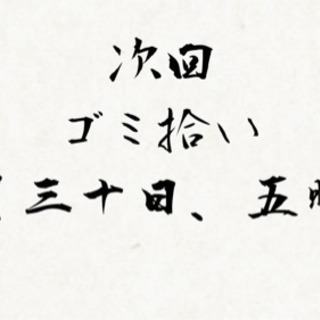 次回
ゴミ拾い
三十日、五